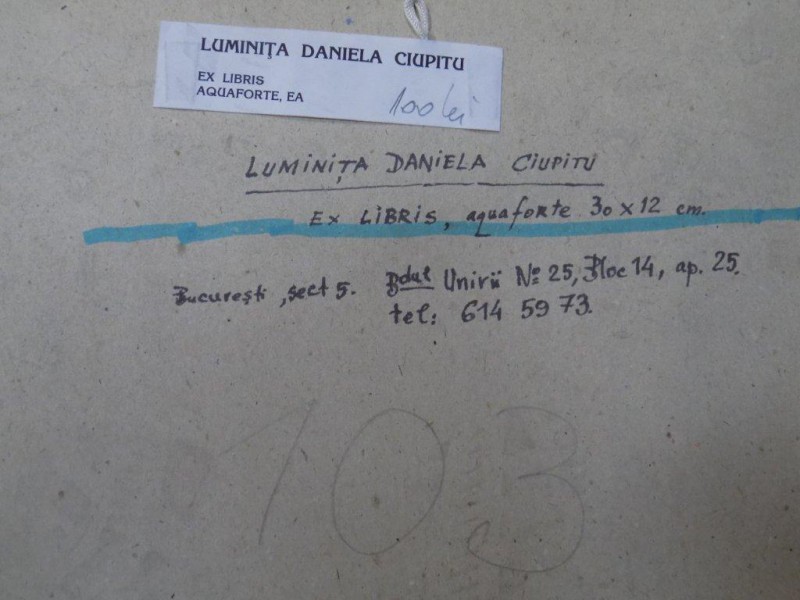 LUMINIŢA DANIELA CIUPITU
EX LIBRIS
AQUAFORTE, EA
100 lei
LUMINIŢA DANIELA CIUPITU
EX LIBRIS, aquaforte 30 x 12 cm.
Bucureşti, sect 5. Bdul Unirii № 25, Bloc 14, ap. 25.
tel: 614 59 73.
103